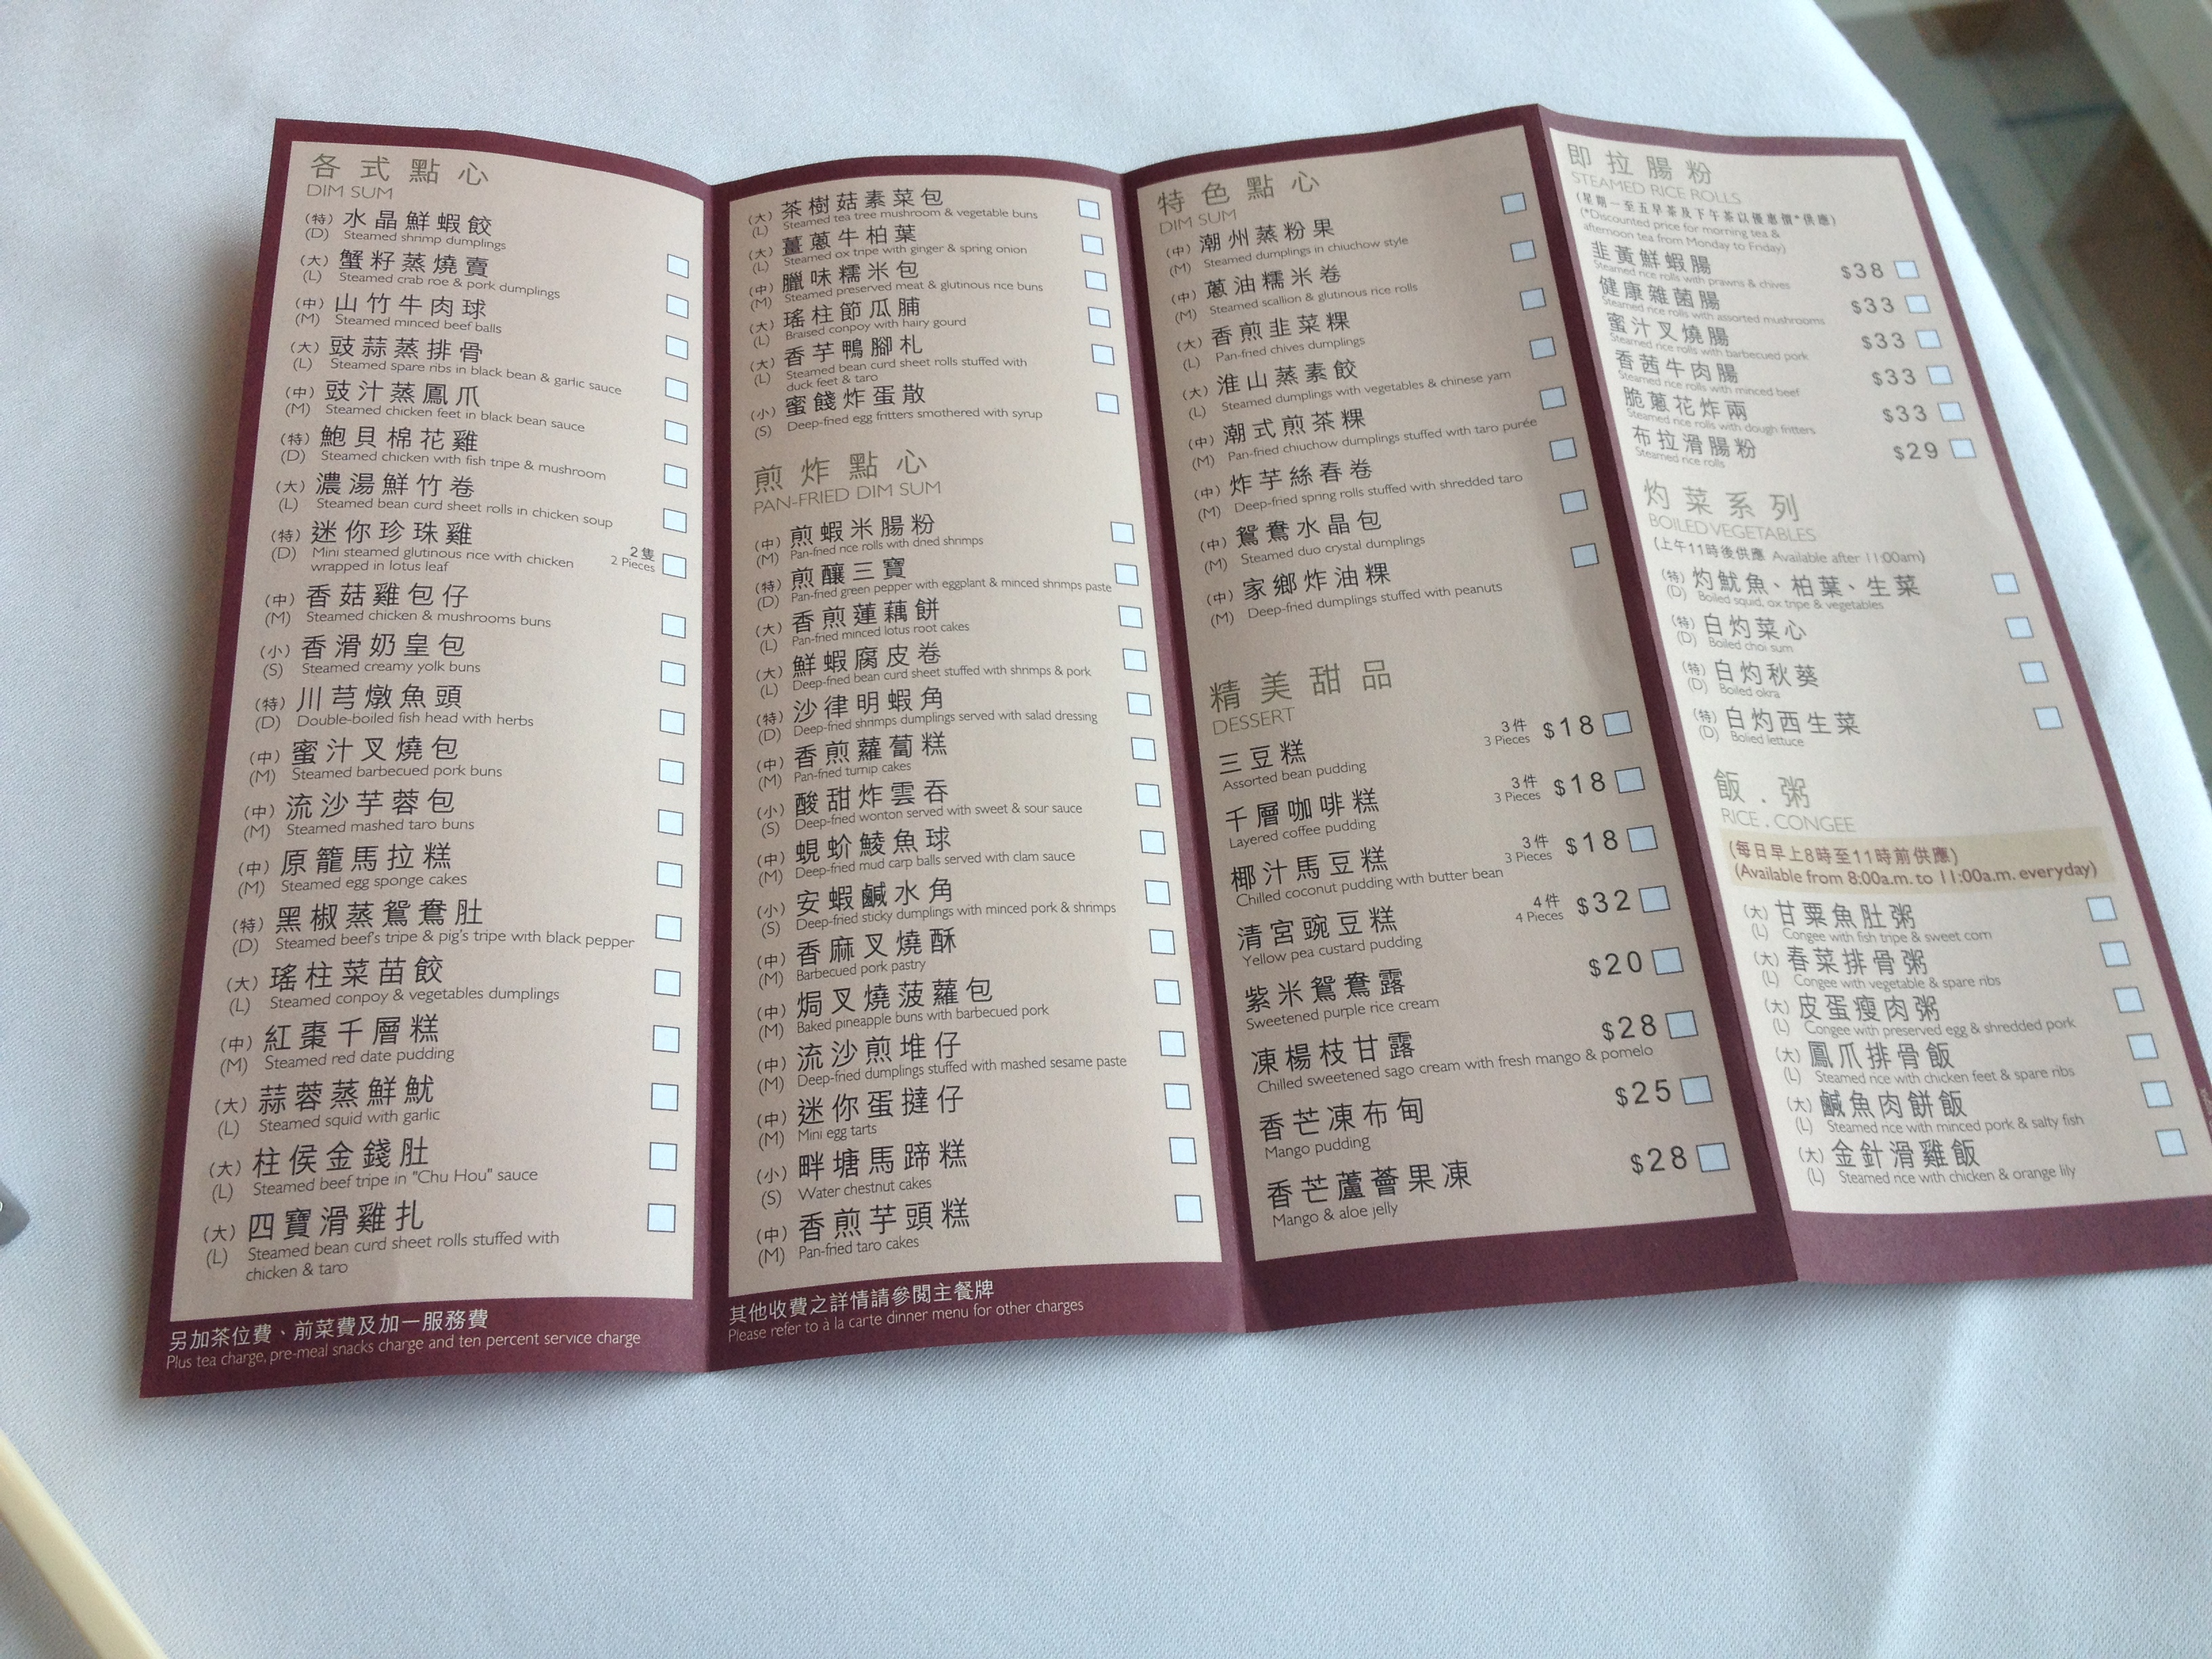 各式點心
DIM SUM
(特) 水晶鮮蝦餃
(D) Steamed shrimp dumplings
(大) 蟹籽蒸燒賣
(L) Steamed crab roe & pork dumplings
(中) 山竹牛肉球
(M) Steamed minced beef balls
(大) 豉蒜蒸排骨
(L) Steamed spare ribs in black bean & garlic sauce
(中) 豉汁蒸鳳爪
(M) Steamed chicken feet in black bean sauce
(特) 鮑貝棉花雞
(D) Steamed chicken with fish tripe & mushroom
(大) 濃湯鮮竹卷
(L) Steamed bean curd sheet rolls in chicken soup
(特) 迷你珍珠雞 2隻
(D) Mini steamed glutinous rice with chicken 2 Pieces
wrapped in lotus leaf
(中) 香菇雞包仔
(M) Steamed chicken & mushrooms buns
(小) 香滑奶皇包
(S) Steamed creamy yolk buns
(特) 川芎燉魚頭
(D) Double-boiled fish head with herbs
(中) 蜜汁叉燒包
(M) Steamed barbecued pork buns
(中) 流沙芋蓉包
(M) Steamed mashed taro buns
(中) 原籠馬拉糕
(M) Steamed egg sponge cakes
(特) 黑椒蒸鴛鴦肚
(D) Steamed beef's tripe & pig's tripe with black pepper
(大) 瑤柱菜苗餃
(L) Steamed conpoy & vegetables dumplings
(中) 紅棗千層糕
(M) Steamed red date pudding
(大) 蒜蓉蒸鮮魷
(L) Steamed squid with garlic
(大) 柱侯金錢肚
(L) Steamed beef tripe in "Chu Hou" sauce
(大) 四寶滑雞扎
(L) Steamed bean curd sheet rolls stuffed with
chicken & taro
另加茶位費、前菜費及加一服務費
Plus tea charge, pre-meal snacks charge and ten percent service charge
(大) 茶樹菇素菜包
(L) Steamed tea tree mushroom & vegetable buns
(大) 薑蔥牛柏葉
(L) Steamed ox tripe with ginger & spring onion
(中) 臘味糯米包
(M) Steamed preserved meat & glutinous rice buns
(大) 瑤柱節瓜脯
(L) Braised conpoy with hairy gourd
(大) 香芋鴨腳札
(L) Steamed bean curd sheet rolls stuffed with
duck feet & taro
(小) 蜜餞炸蛋散
(S) Deep-fried egg fritters smothered with syrup
煎炸點心
PAN-FRIED DIM SUM
(中) 煎蝦米腸粉
(M) Pan-fried rice rolls with dried shrimps
(特) 煎釀三寶
(D) Pan-fried green pepper with eggplant & minced shrimps paste
(大) 香煎蓮藕餅
(L) Pan-fried minced lotus root cakes
(大) 鮮蝦腐皮卷
(L) Deep-fried bean curd sheet stuffed with shrimps & pork
(特) 沙律明蝦角
(D) Deep-fried shrimps dumplings served with salad dressing
(中) 香煎蘿蔔糕
(M) Pan-fried turnip cakes
(小) 酸甜炸雲吞
(S) Deep-fried wonton served with sweet & sour sauce
(中) 蜆蚧鯪魚球
(M) Deep-fried mud carp balls served with clam sauce
(小) 安蝦鹹水角
(S) Deep-fried sticky dumplings with minced pork & shrimps
(中) 香麻叉燒酥
(M) Barbecued pork pastry
(中) 焗叉燒菠蘿包
(M) Baked pineapple buns with barbecued pork
(中) 流沙煎堆仔
(M) Deep-fried dumplings stuffed with mashed sesame paste
(中) 迷你蛋撻仔
(M) Mini egg tarts
(小) 畔塘馬蹄糕
(S) Water chestnut cakes
(中) 香煎芋頭糕
(M) Pan-fried taro cakes
其他收費之詳情請參閱主餐牌
Please refer to à la carte dinner menu for other charges
特色點心
DIM SUM
(中) 潮州蒸粉果
(M) Steamed dumplings in chiuchow style
(中) 蔥油糯米卷
(M) Steamed scallion & glutinous rice rolls
(大) 香煎韭菜粿
(L) Pan-fried chives dumplings
(大) 淮山蒸素餃
(L) Steamed dumplings with vegetables & chinese yam
(中) 潮式煎茶粿
(M) Pan-fried chiuchow dumplings stuffed with taro purée
(中) 炸芋絲春卷
(M) Deep-fried spring rolls stuffed with shredded taro
(中) 鴛鴦水晶包
(M) Steamed duo crystal dumplings
(中) 家鄉炸油粿
(M) Deep-fried dumplings stuffed with peanuts
精美甜品
DESSERT
三豆糕 3件 $18
Assorted bean pudding 3 Pieces
千層咖啡糕 3件 $18
Layered coffee pudding 3 Pieces
椰汁馬豆糕 3件 $18
Chilled coconut pudding with butter bean 3 Pieces
清宮豌豆糕 4件 $32
Yellow pea custard pudding 4 Pieces
紫米鴛鴦露 $20
Sweetened purple rice cream
凍楊枝甘露 $28
Chilled sweetened sago cream with fresh mango & pomelo
香芒凍布甸 $25
Mango pudding
香芒蘆薈果凍 $28
Mango & aloe jelly
即拉腸粉
STEAMED RICE ROLLS
(星期一至五早茶及下午茶以優惠價*供應)
(*Discounted price for morning tea &
afternoon tea from Monday to Friday)
韭黃鮮蝦腸 $38
Steamed rice rolls with prawns & chives
健康雜菌腸 $33
Steamed rice rolls with assorted mushrooms
蜜汁叉燒腸 $33
Steamed rice rolls with barbecued pork
香茜牛肉腸 $33
Steamed rice rolls with minced beef
脆蔥花炸兩 $33
Steamed rice rolls with dough fritters
布拉滑腸粉 $29
Steamed rice rolls
灼菜系列
BOILED VEGETABLES
(上午11時後供應 Available after 11:00am)
(特) 灼魷魚、柏葉、生菜
(D) Boiled squid, ox tripe & vegetables
(特) 白灼菜心
(D) Boiled choi sum
(特) 白灼秋葵
(D) Boiled okra
(特) 白灼西生菜
(D) Boiled lettuce
飯．粥
RICE . CONGEE
(每日早上8時至11時前供應)
(Available from 8:00a.m. to 11:00a.m. everyday)
(大) 甘粟魚肚粥
(L) Congee with fish tripe & sweet corn
(大) 春菜排骨粥
(L) Congee with vegetable & spare ribs
(大) 皮蛋瘦肉粥
(L) Congee with preserved egg & shredded pork
(大) 鳳爪排骨飯
(L) Steamed rice with chicken feet & spare ribs
(大) 鹹魚肉餅飯
(L) Steamed rice with minced pork & salty fish
(大) 金針滑雞飯
(L) Steamed rice with chicken & orange lily